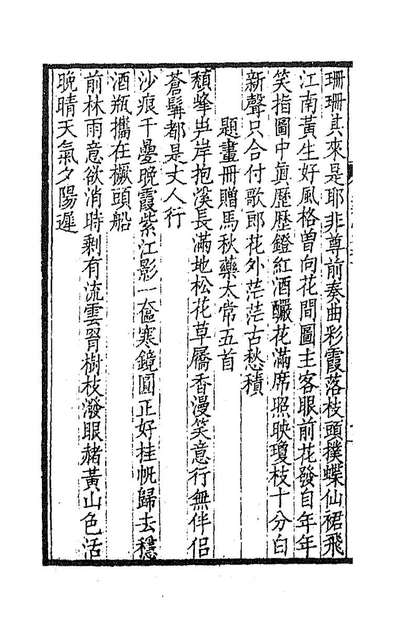 珊珊其來是耶非尊前奏曲彩霞落枝頭撲蝶仙裙飛
江南黃生好風格曾向花間圖主客眼前花發自年年
笑指圖中眞歷歷鐙紅酒釅花滿席照映瓊枝十分白
新聲只合付歌郎花外茫茫古愁積
題畫冊贈馬秋藥太常五首
頹峰岸抱溪長滿地松花草屩香漫笑意行無伴侶
蒼髯都是丈人行
沙痕千疊晚霞紫江影一奩寒鏡圓正好挂帆歸去穩
酒瓶攜在橛頭船
前林雨意欲消時剩有流雲罥樹枝潑眼赭黃山色活
晚晴天氣夕陽遲